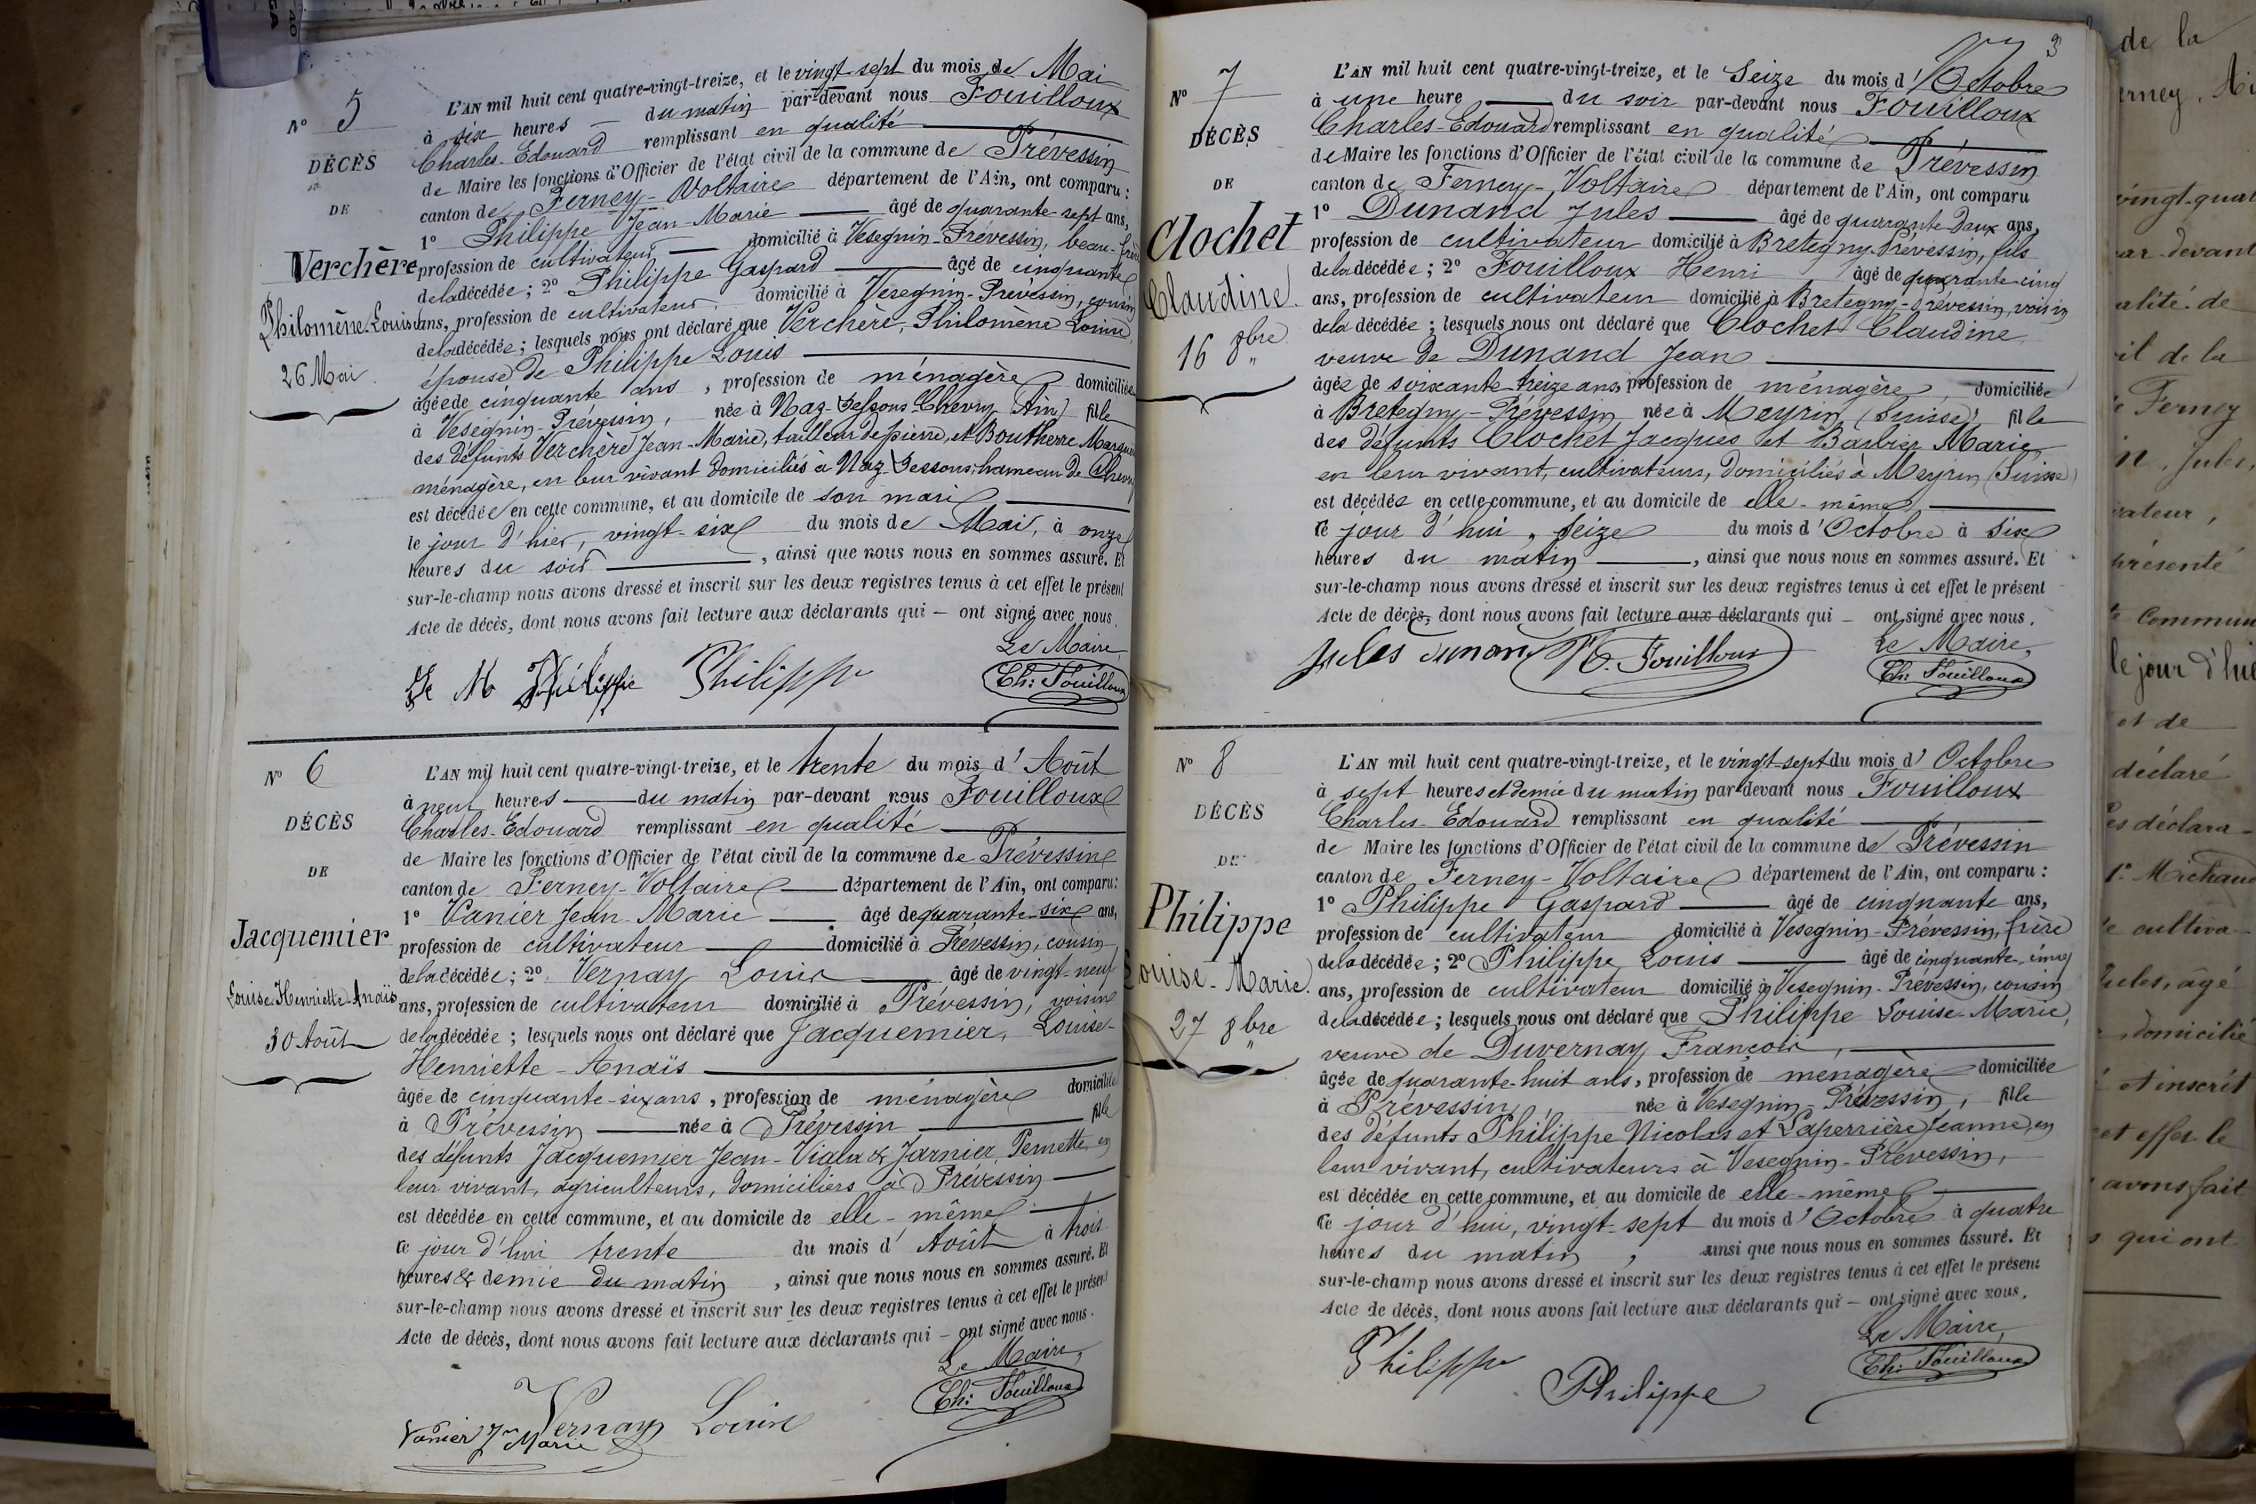 N° 5
DÉCÈS
DE
Verchère
Philomène Louise
26 Mai
L'AN mil huit cent quatre-vingt-treize, et le vingt-sept du mois de Mai
à six heures — du matin par-devant nous Fouilloux
Charles-Edouard remplissant en qualité
de Maire les fonctions d'Officier de l'état civil de la commune de Prévessin
canton de Ferney-Voltaire département de l'Ain, ont comparu :
1° Philippe Jean-Marie — âgé de quarante-sept ans,
profession de cultivateur, — domicilié à Vesegnin-Prévessin, beau-frère
de la décédée ; 2° Philippe Gaspard — âgé de cinquante
ans, profession de cultivateur, domicilié à Vesegnin-Prévessin, cousin
de la décédée ; lesquels nous ont déclaré que Verchère, Philomène Louise,
épouse de Philippe Louis
âgée de cinquante ans, profession de ménagère domiciliée
à Vesegnin-Prévessin, née à Naz-Dessous-Chevry (Ain) fille
des défunts Verchère Jean-Marie, tailleur de pierre, et Boutherre
ménagère, en leur vivant domiciliés à Naz-Dessous, hameau de Chevry
est décédée en cette commune, et au domicile de son mari
le jour d'hier, vingt-six du mois de Mai, à onze
heures du soir —, ainsi que nous nous en sommes assuré. Et
sur-le-champ nous avons dressé et inscrit sur les deux registres tenus à cet effet le présent
Acte de décès, dont nous avons fait lecture aux déclarants qui — ont signé avec nous.
Le Maire,
Philippe Philippe Ch: Fouilloux
N° 6
DÉCÈS
DE
Jacquemier
Louise-Henriette-Anaïs
30 Août
L'AN mil huit cent quatre-vingt-treize, et le trente du mois d'Août
à neuf heures — du matin par-devant nous Fouilloux
Charles-Edouard remplissant en qualité
de Maire les fonctions d'Officier de l'état civil de la commune de Prévessin
canton de Ferney-Voltaire — département de l'Ain, ont comparu :
1° Vanier Jean-Marie — âgé de quarante-six ans,
profession de cultivateur — domicilié à Prévessin, cousin
de la décédée ; 2° Vernay Louis — âgé de vingt-neuf
ans, profession de cultivateur domicilié à Prévessin, voisin
de la décédée ; lesquels nous ont déclaré que Jacquemier, Louise-
Henriette-Anaïs
âgée de cinquante-six ans, profession de ménagère domiciliée
à Prévessin — née à Prévessin — fille
des défunts Jacquemier Jean- & Jarnier Pernette, en
leur vivant, agriculteurs, domiciliers à Prévessin —
est décédée en cette commune, et au domicile de elle-même —
ce jour d'hui trente du mois d'Août à trois
heures & demie du matin, ainsi que nous nous en sommes assuré. Et
sur-le-champ nous avons dressé et inscrit sur les deux registres tenus à cet effet le présent
Acte de décès, dont nous avons fait lecture aux déclarants qui — ont signé avec nous.
Le Maire,
Ch: Fouilloux
Vernay Louis
Vanier Jn Marie
3
N° 7
DÉCÈS
DE
Clochet
Claudine.
16 8bre
L'AN mil huit cent quatre-vingt-treize, et le Seize du mois d'Octobre
à une heure — du soir par-devant nous Fouilloux
Charles-Edouard remplissant en qualité
de Maire les fonctions d'Officier de l'état civil de la commune de Prévessin
canton de Ferney-Voltaire département de l'Ain, ont comparu
1° Dunand Jules — âgé de quarante-deux ans,
profession de cultivateur domicilié à Bretegny-Prévessin, fils
de la décédée ; 2° Fouilloux Henri âgé de quarante-cinq
ans, profession de cultivateur domicilié à Bretegny-Prévessin, voisin
de la décédée ; lesquels nous ont déclaré que Clochet Claudine
veuve de Dunand Jean
âgée de soixante-treize ans, profession de ménagère, domiciliée
à Bretegny-Prévessin née à Meyrin (Suisse) fille
des défunts Clochet Jacques et Barbier Marie
en leur vivant, cultivateurs, domiciliés à Meyrin (Suisse)
est décédée en cette commune, et au domicile de elle-même, —
ce jour d'hui, seize du mois d'Octobre à six
heures du matin —, ainsi que nous nous en sommes assuré. Et
sur-le-champ nous avons dressé et inscrit sur les deux registres tenus à cet effet le présent
Acte de décès, dont nous avons fait lecture aux déclarants qui — ont signé avec nous.
Le Maire,
Jules Dunand H. Fouilloux Ch: Fouilloux
N° 8
DÉCÈS
DE
Philippe
Louise-Marie.
27 8bre
L'AN mil huit cent quatre-vingt-treize, et le vingt-sept du mois d'Octobre
à sept heures et demie du matin par-devant nous Fouilloux
Charles-Edouard remplissant en qualité
de Maire les fonctions d'Officier de l'état civil de la commune de Prévessin
canton de Ferney-Voltaire département de l'Ain, ont comparu :
1° Philippe Gaspard — âgé de cinquante ans,
profession de cultivateur domicilié à Vesegnin-Prévessin, frère
de la décédée ; 2° Philippe Louis — âgé de cinquante-cinq
ans, profession de cultivateur domicilié à Vesegnin-Prévessin, cousin
de la décédée ; lesquels nous ont déclaré que Philippe Louise-Marie,
veuve de Duvernay François, —
âgée de quarante-huit ans, profession de ménagère domiciliée
à Prévessin, née à Vesegnin-Prévessin, fille
des défunts Philippe Nicolas et Laperrière Jeanne, en
leur vivant, cultivateurs à Vesegnin-Prévessin,
est décédée en cette commune, et au domicile de elle-même —
ce jour d'hui, vingt-sept du mois d'Octobre à quatre
heures du matin, ainsi que nous nous en sommes assuré. Et
sur-le-champ nous avons dressé et inscrit sur les deux registres tenus à cet effet le présent
Acte de décès, dont nous avons fait lecture aux déclarants qui — ont signé avec nous.
Le Maire,
Philippe Philippe Ch: Fouilloux
de la
vingt-quat
par-devant
alité de
il de la
Ferney
Jules,
présenté
commun
le jour d'hie
et de
déclaré
es déclara-
1° Michaud
cultiva-
Jules, âgé
domicilié
et inscrit
cet effet le
avons fait
qui ont